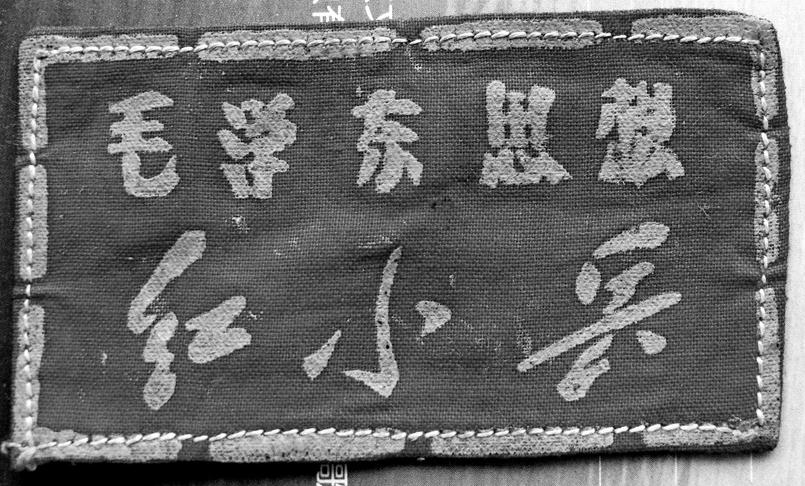 毛泽东思想
红小兵